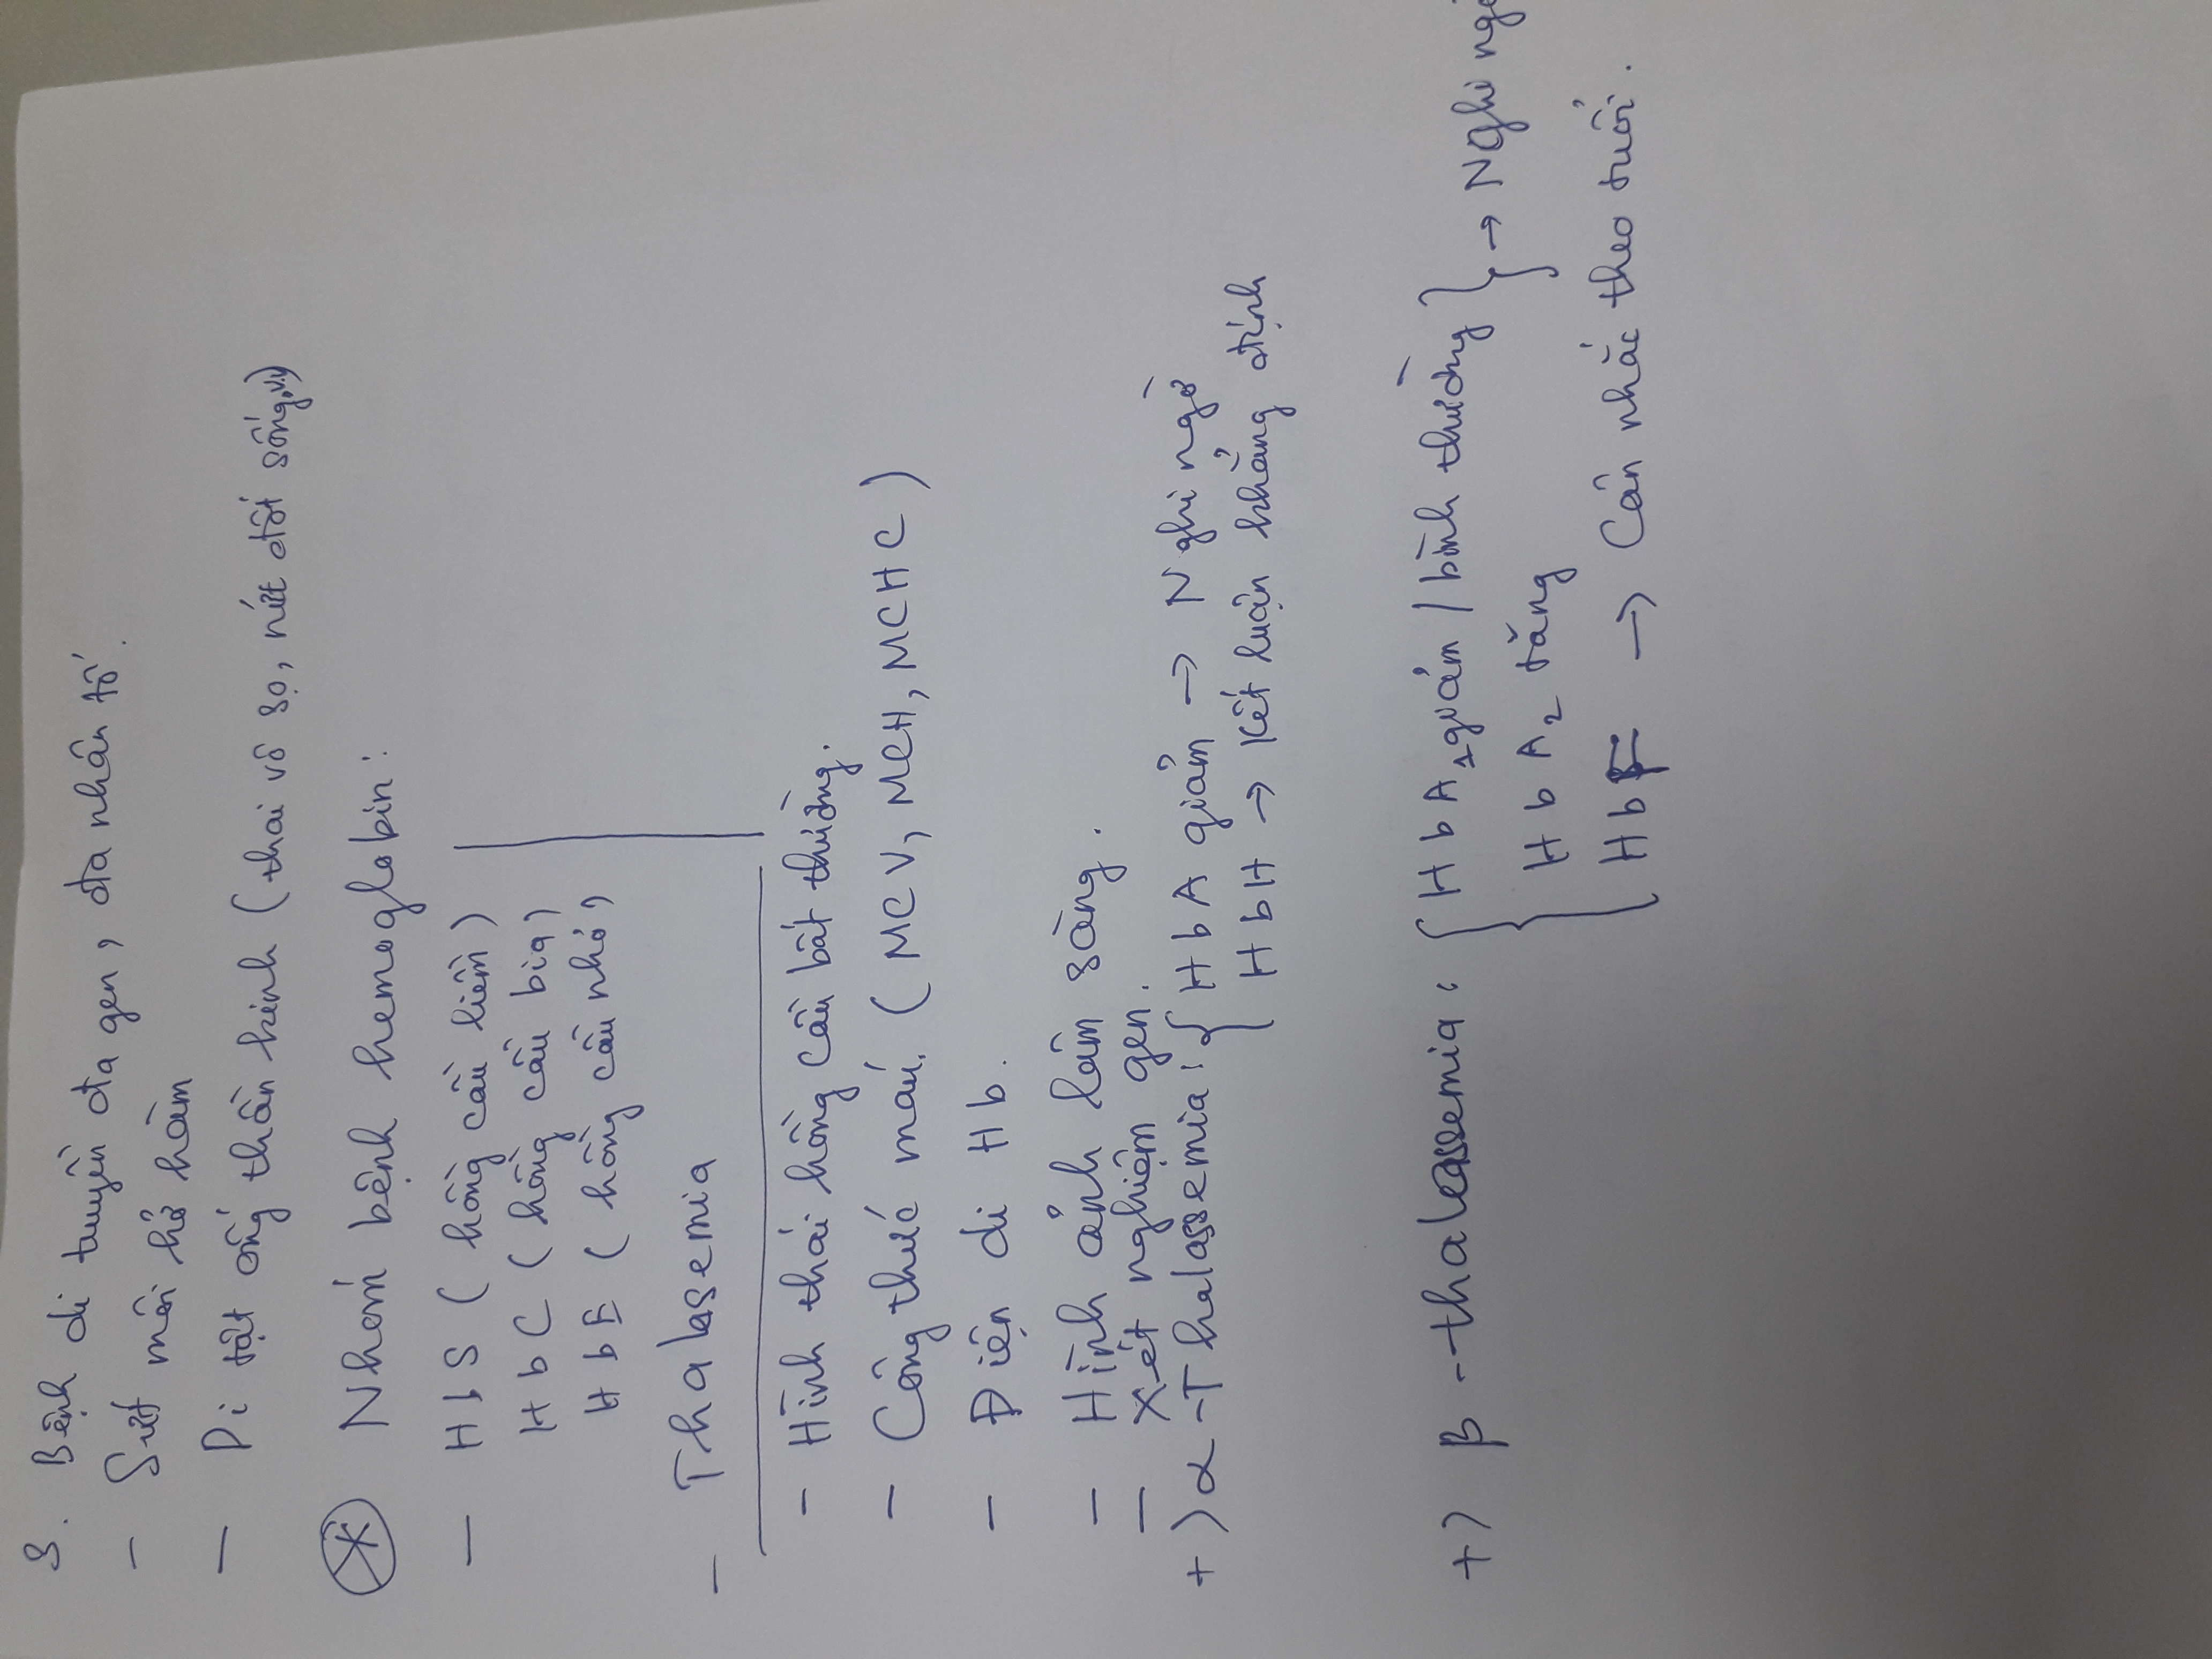 3. Bệnh di truyền đa gen, đa nhân tố.
- Sứt môi hở hàm
- Dị tật ống thần kinh (thai vô sọ, nứt đốt sống,v.v)
* Nhóm bệnh hemoglobin:
- HbS (hồng cầu liềm)
HbC (hồng cầu bia)
HbE (hồng cầu nhỏ)
- Thalasemia
- Hình thái hồng cầu bất thường.
- Công thức máu. (MCV, MCH, MCHC)
- Điện di Hb.
- Hình ảnh lâm sàng.
- Xét nghiệm gen.
+) α-Thalassemia: { HbA giảm → Nghi ngờ
HbH → Kết luận khẳng định
+) β-thalassemia: { HbA₁ giảm / bình thường } → Nghi ngờ
HbA₂ tăng
HbF → Cân nhắc theo tuổi.